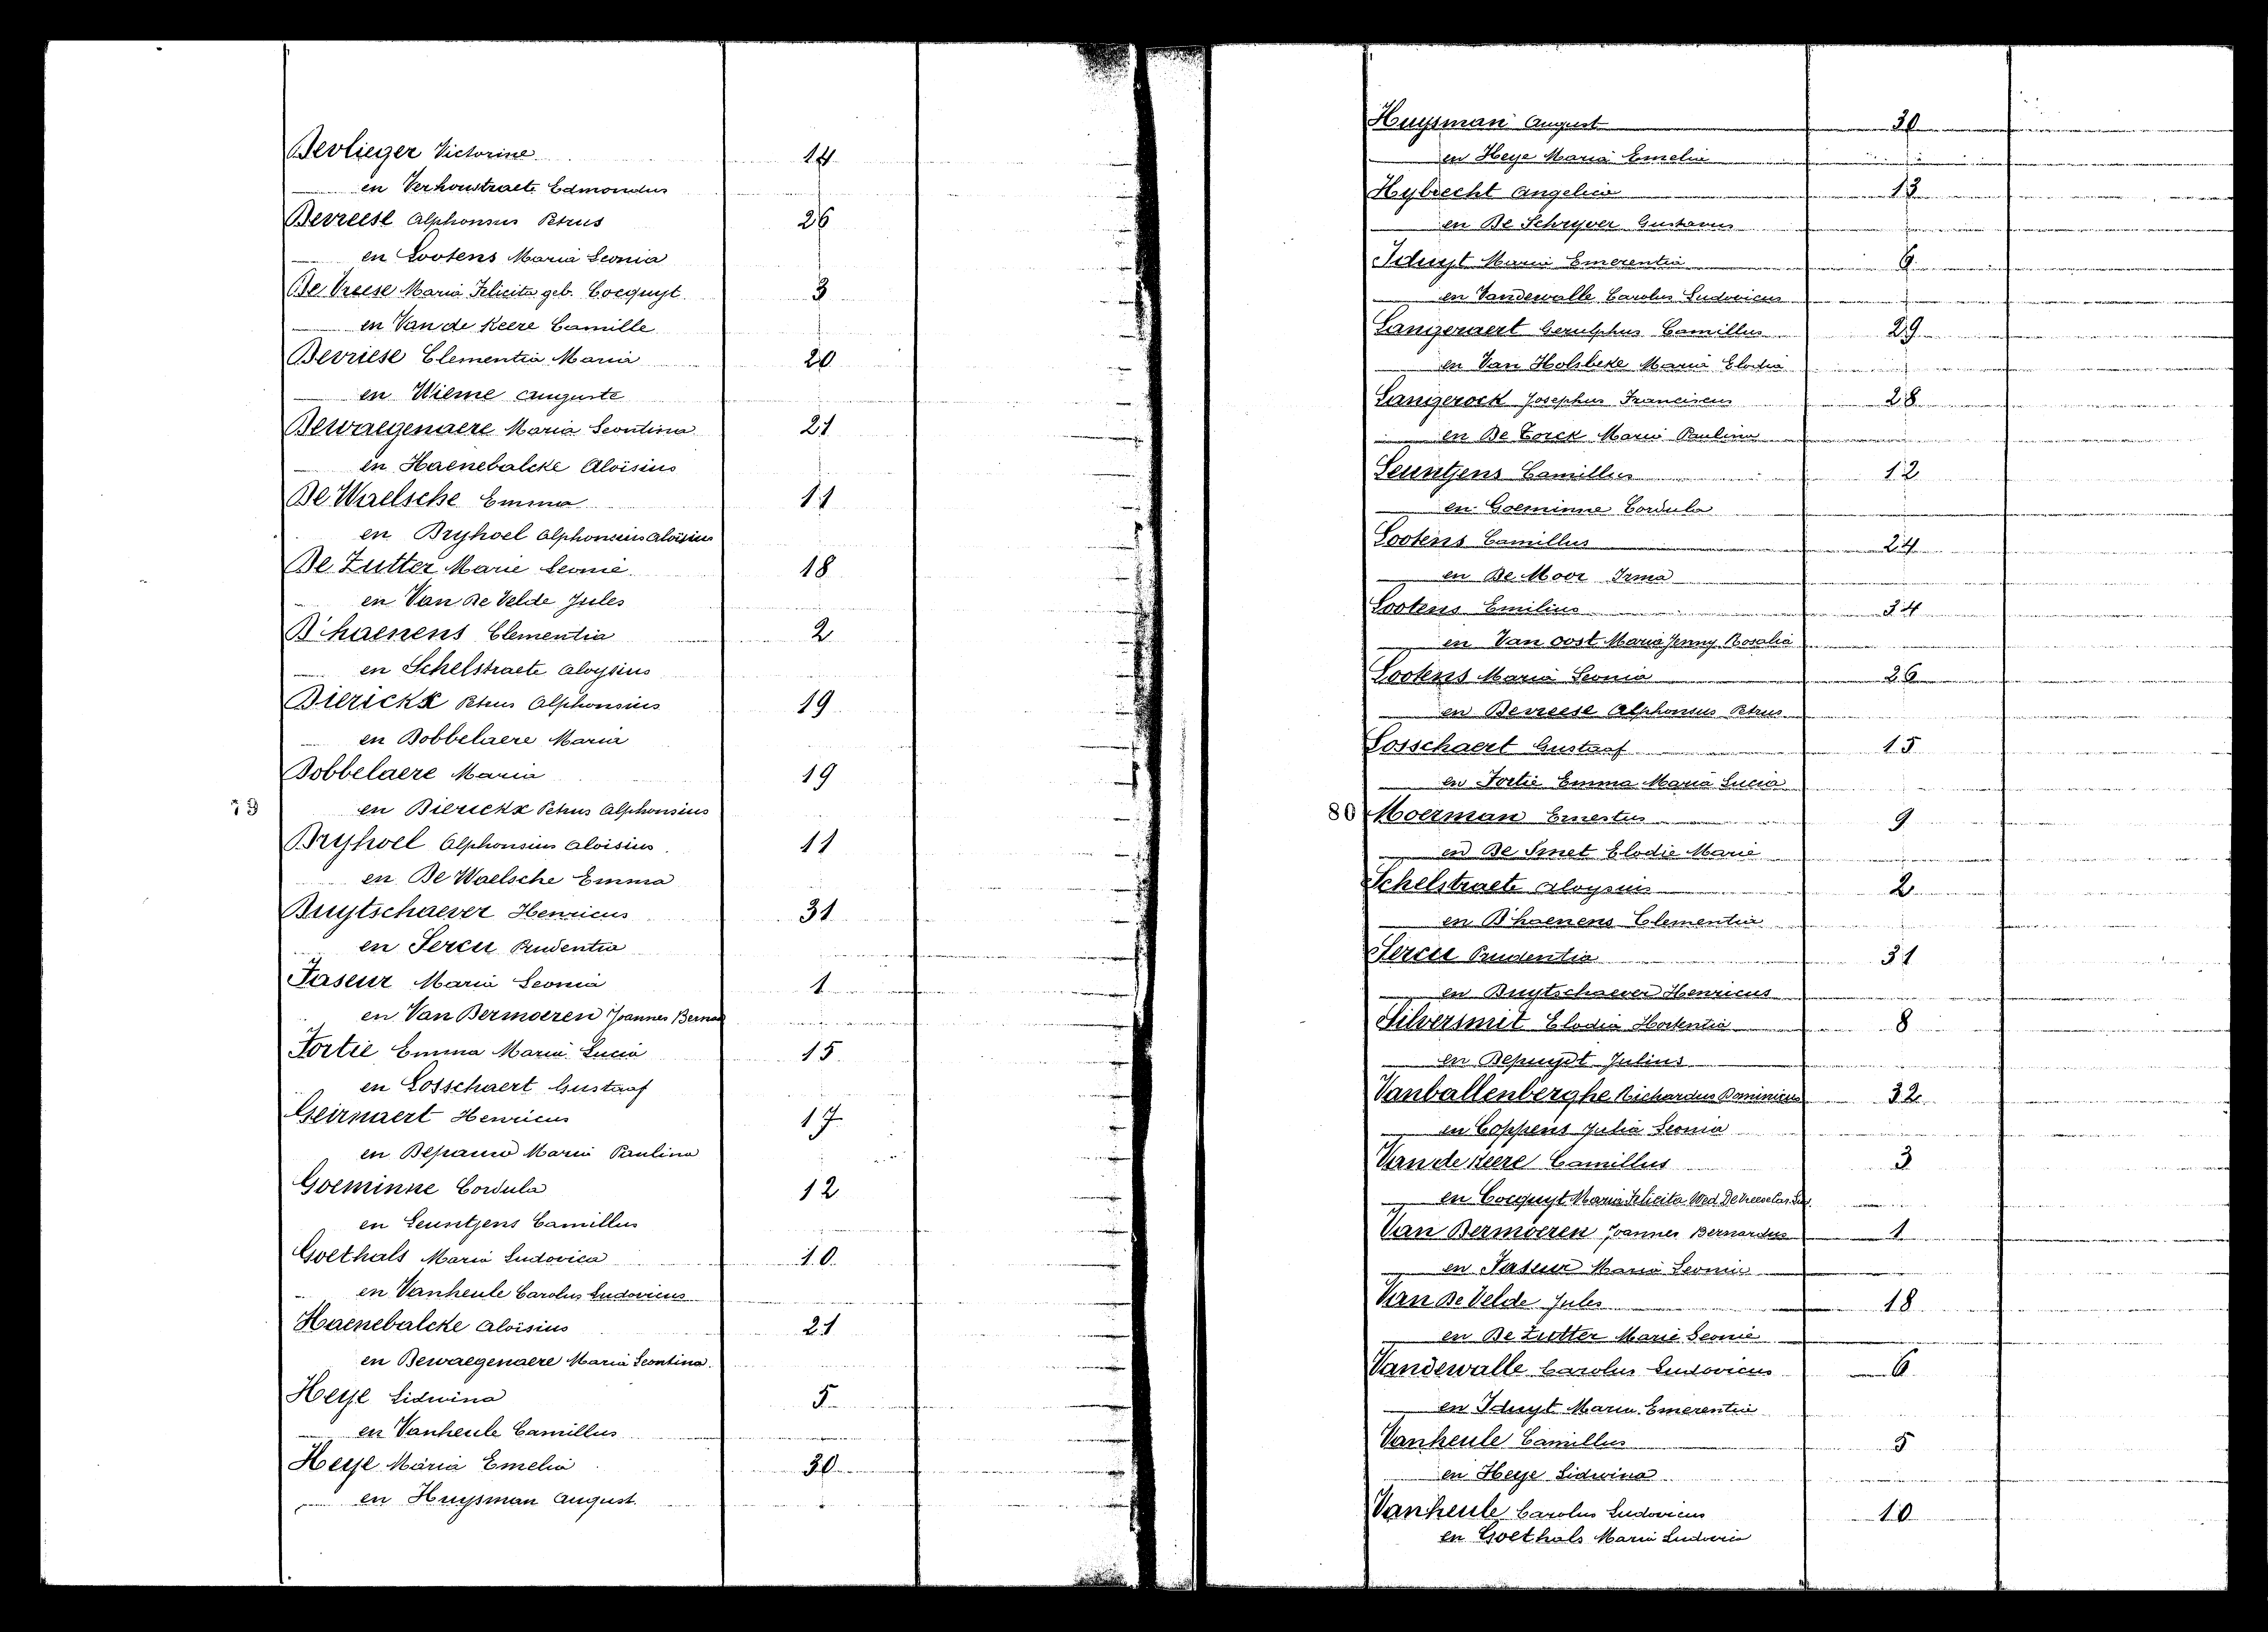 Devlieger Victorine 14
en Verhoustraete Edmondus
Devreese Alphonsus Petrus 26
en Lootens Maria Leonia
De Vreese Maria Felicita geb. Cocquyt 3
en Van de Keere Camille
Devriese Clementia Maria 20
en Wieme Auguste
Dewaegenaere Maria Leontina 21
en Haenebalcke Aloïsius
De Waelsche Emma 11
en Dryhoel Alphonsius Aloïsius
De Zutter Marie Leonie 18
en Van De Velde Jules
D'haenens Clementia 2
en Schelstraete Aloysius
Dierickx Petrus Alphonsius 19
en Dobbelaere Maria
Dobbelaere Maria 19
79 en Dierickx Petrus Alphonsius
Dryhoel Alphonsius Aloisius 11
en De Waelsche Emma
Duytschaever Henricus 31
en Sercu Prudentia
Faseur Maria Leonia 1
en Van Dermoeren Joannes Bernar
Fortie Emma Maria Lucia 15
en Losschaert Gustaaf
Geirnaert Henricus 17
en Depauw Maria Paulina
Goeminne Cordula 12
en Leuntjens Camillus
Goethals Maria Ludovica 10
en Vanheule Carolus Ludovicus
Haenebalcke Aloïsius 21
en Dewaegenaere Maria Leontina
Heye Lidwina 5
en Vanheule Camillus
Heye Maria Emelia 30
en Huysman August.
Huysman August 30
en Heye Maria Emelia
Hybrecht Angelica 13
en De Schryver Gustavus
Iduyt Maria Emerentia 6
en Vandewalle Carolus Ludovicus
Langeraert Gerulphus Camillus 29
en Van Holsbeke Maria Elodia
Langerock Josephus Franciscus 28
en De Torck Maria Paulina
Leuntjens Camillus 12
en Goeminne Cordula
Lootens Camillus 24
en De Moor Irma
Lootens Emilius 34
en Van Oost Maria Jenny Rosalia
Lootens Maria Leonia 26
en Devreese Alphonsus Petrus
Losschaert Gustaaf 15
en Fortie Emma Maria Lucia
80 Moerman Ernestus 9
en De Smet Elodie Marie
Schelstraete Aloysius 2
en D'haenens Clementia
Sercu Prudentia 31
en Duytschaever Henricus
Silversmit Elodia Hortentia 8
en Depuydt Julius
Vanballenberghe Richardus Dominicus 32
en Coppens Julia Leonia
Van de Keere Camillus 3
en Cocquyt Maria Felicita Wed. De Vreese Car. Lud.
Van Dermoeren Joannes Bernardus 1
en Faseur Maria Leonia
Van De Velde Jules 18
en De Zutter Marie Leonie
Vandewalle Carolus Ludovicus 6
en Iduyt Maria Emerentia
Vanheule Camillus 5
en Heye Lidwina
Vanheule Carolus Ludovicus 10
en Goethals Maria Ludovica